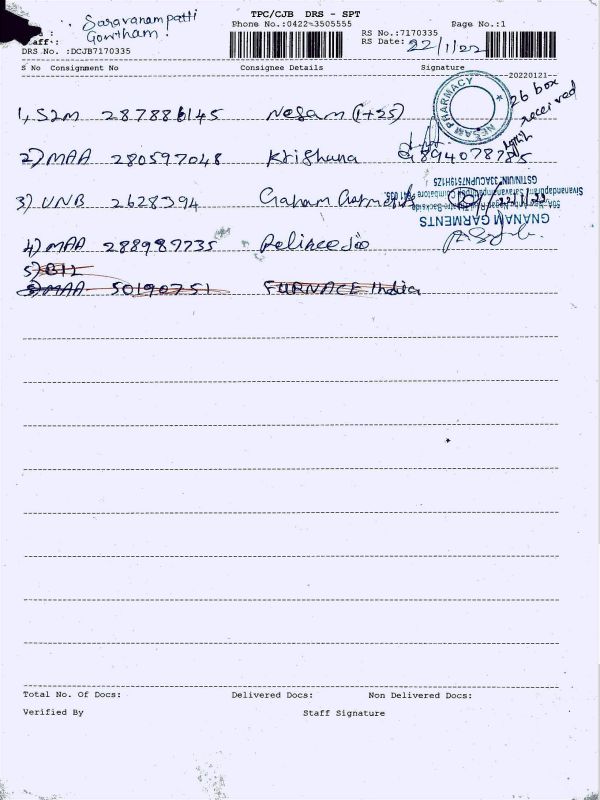 TPC/CJB DRS - SPT
Saravanampatti
Phone No.:0422-3505555 Page No.:1
Gowtham!
RS No.:7170335
RS Date: 22/1/22
DRS No. :DCJB7170335
S No Consignment No Consignee Details Signature
20220121
1, S2M 287886145 Nesam (1+25)
NESAM PHARMACY
26 box received
2) MAA 280597048 Krishna 9894078785
3) UNB 2628394
GNANAM GARMENTS
4) MAA 288989735
5) B12
5) MAA 50190751 FURNACE India
Total No. Of Docs: Delivered Docs: Non Delivered Docs:
Verified By Staff Signature